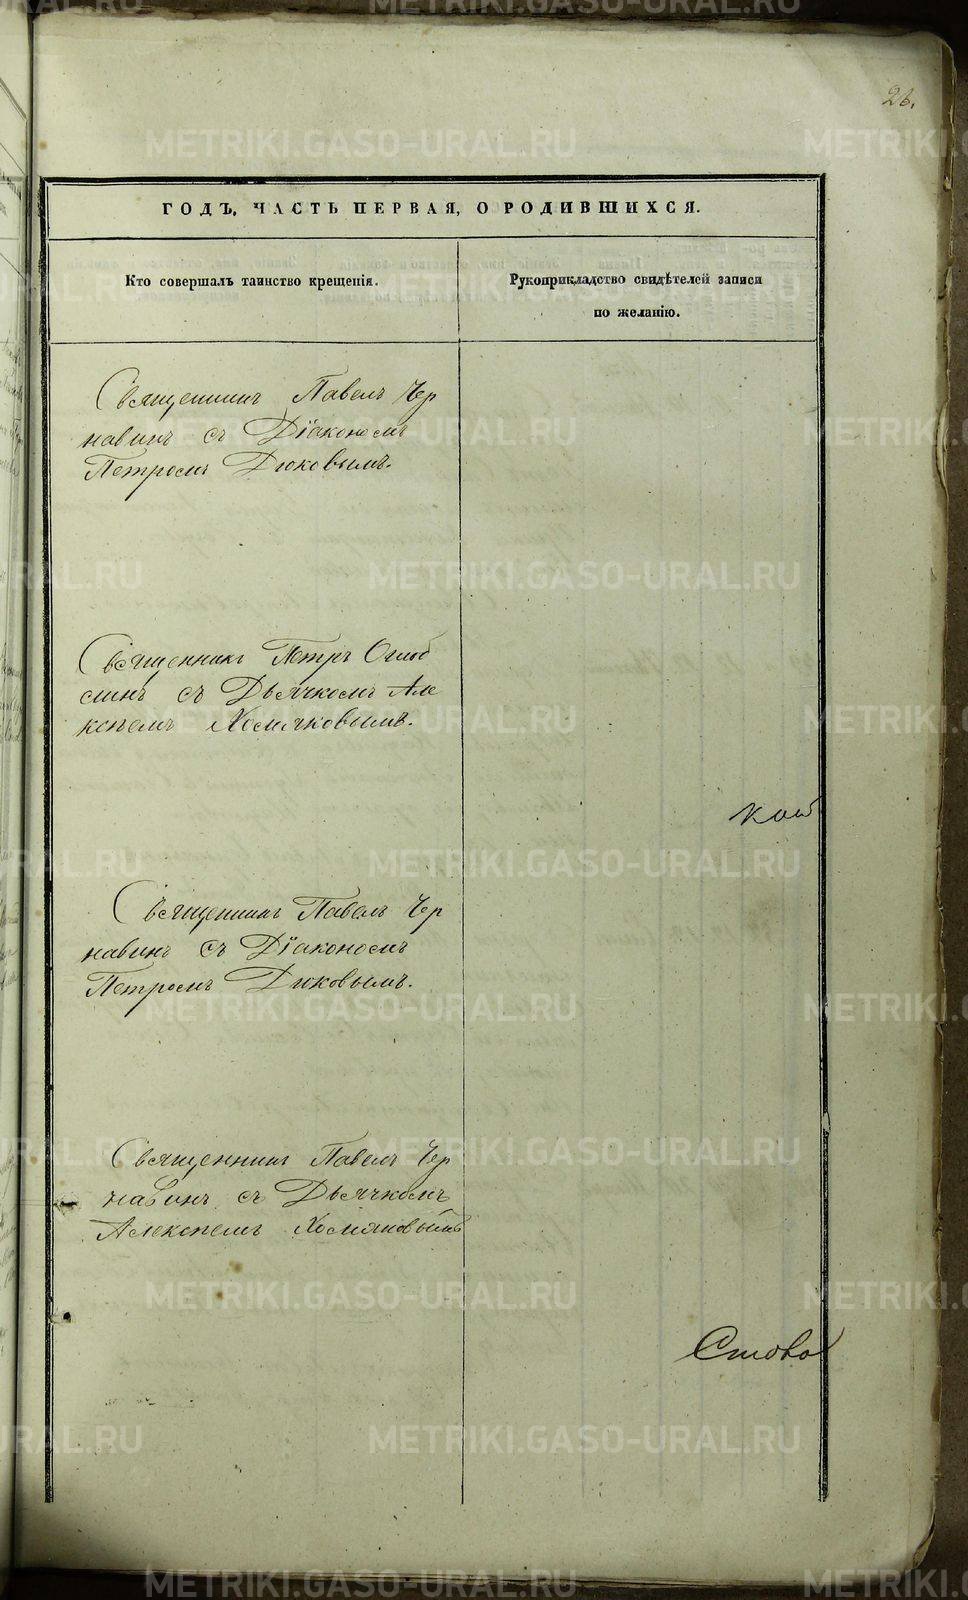 26.
ГОДЪ, ЧАСТЬ ПЕРВАЯ, О РОДИВШИХСЯ.
Кто совершалъ таинство крещенія.
Рукоприкладство свидѣтелей записи
по желанію.
Священникъ Павелъ Чер
навинъ съ Діакономъ
Петромъ Дюковымъ.
Священникъ Петръ Оглоб
линъ съ Дьячкомъ Але
ксѣемъ Хомяковымъ.
Священникъ Павелъ Чер
навинъ съ Діакономъ
Петромъ Дюковымъ.
Священникъ Павелъ Чер
навинъ съ Дьячкомъ
Алексѣемъ Хомяковымъ
METRIKI.GASO-URAL.RU